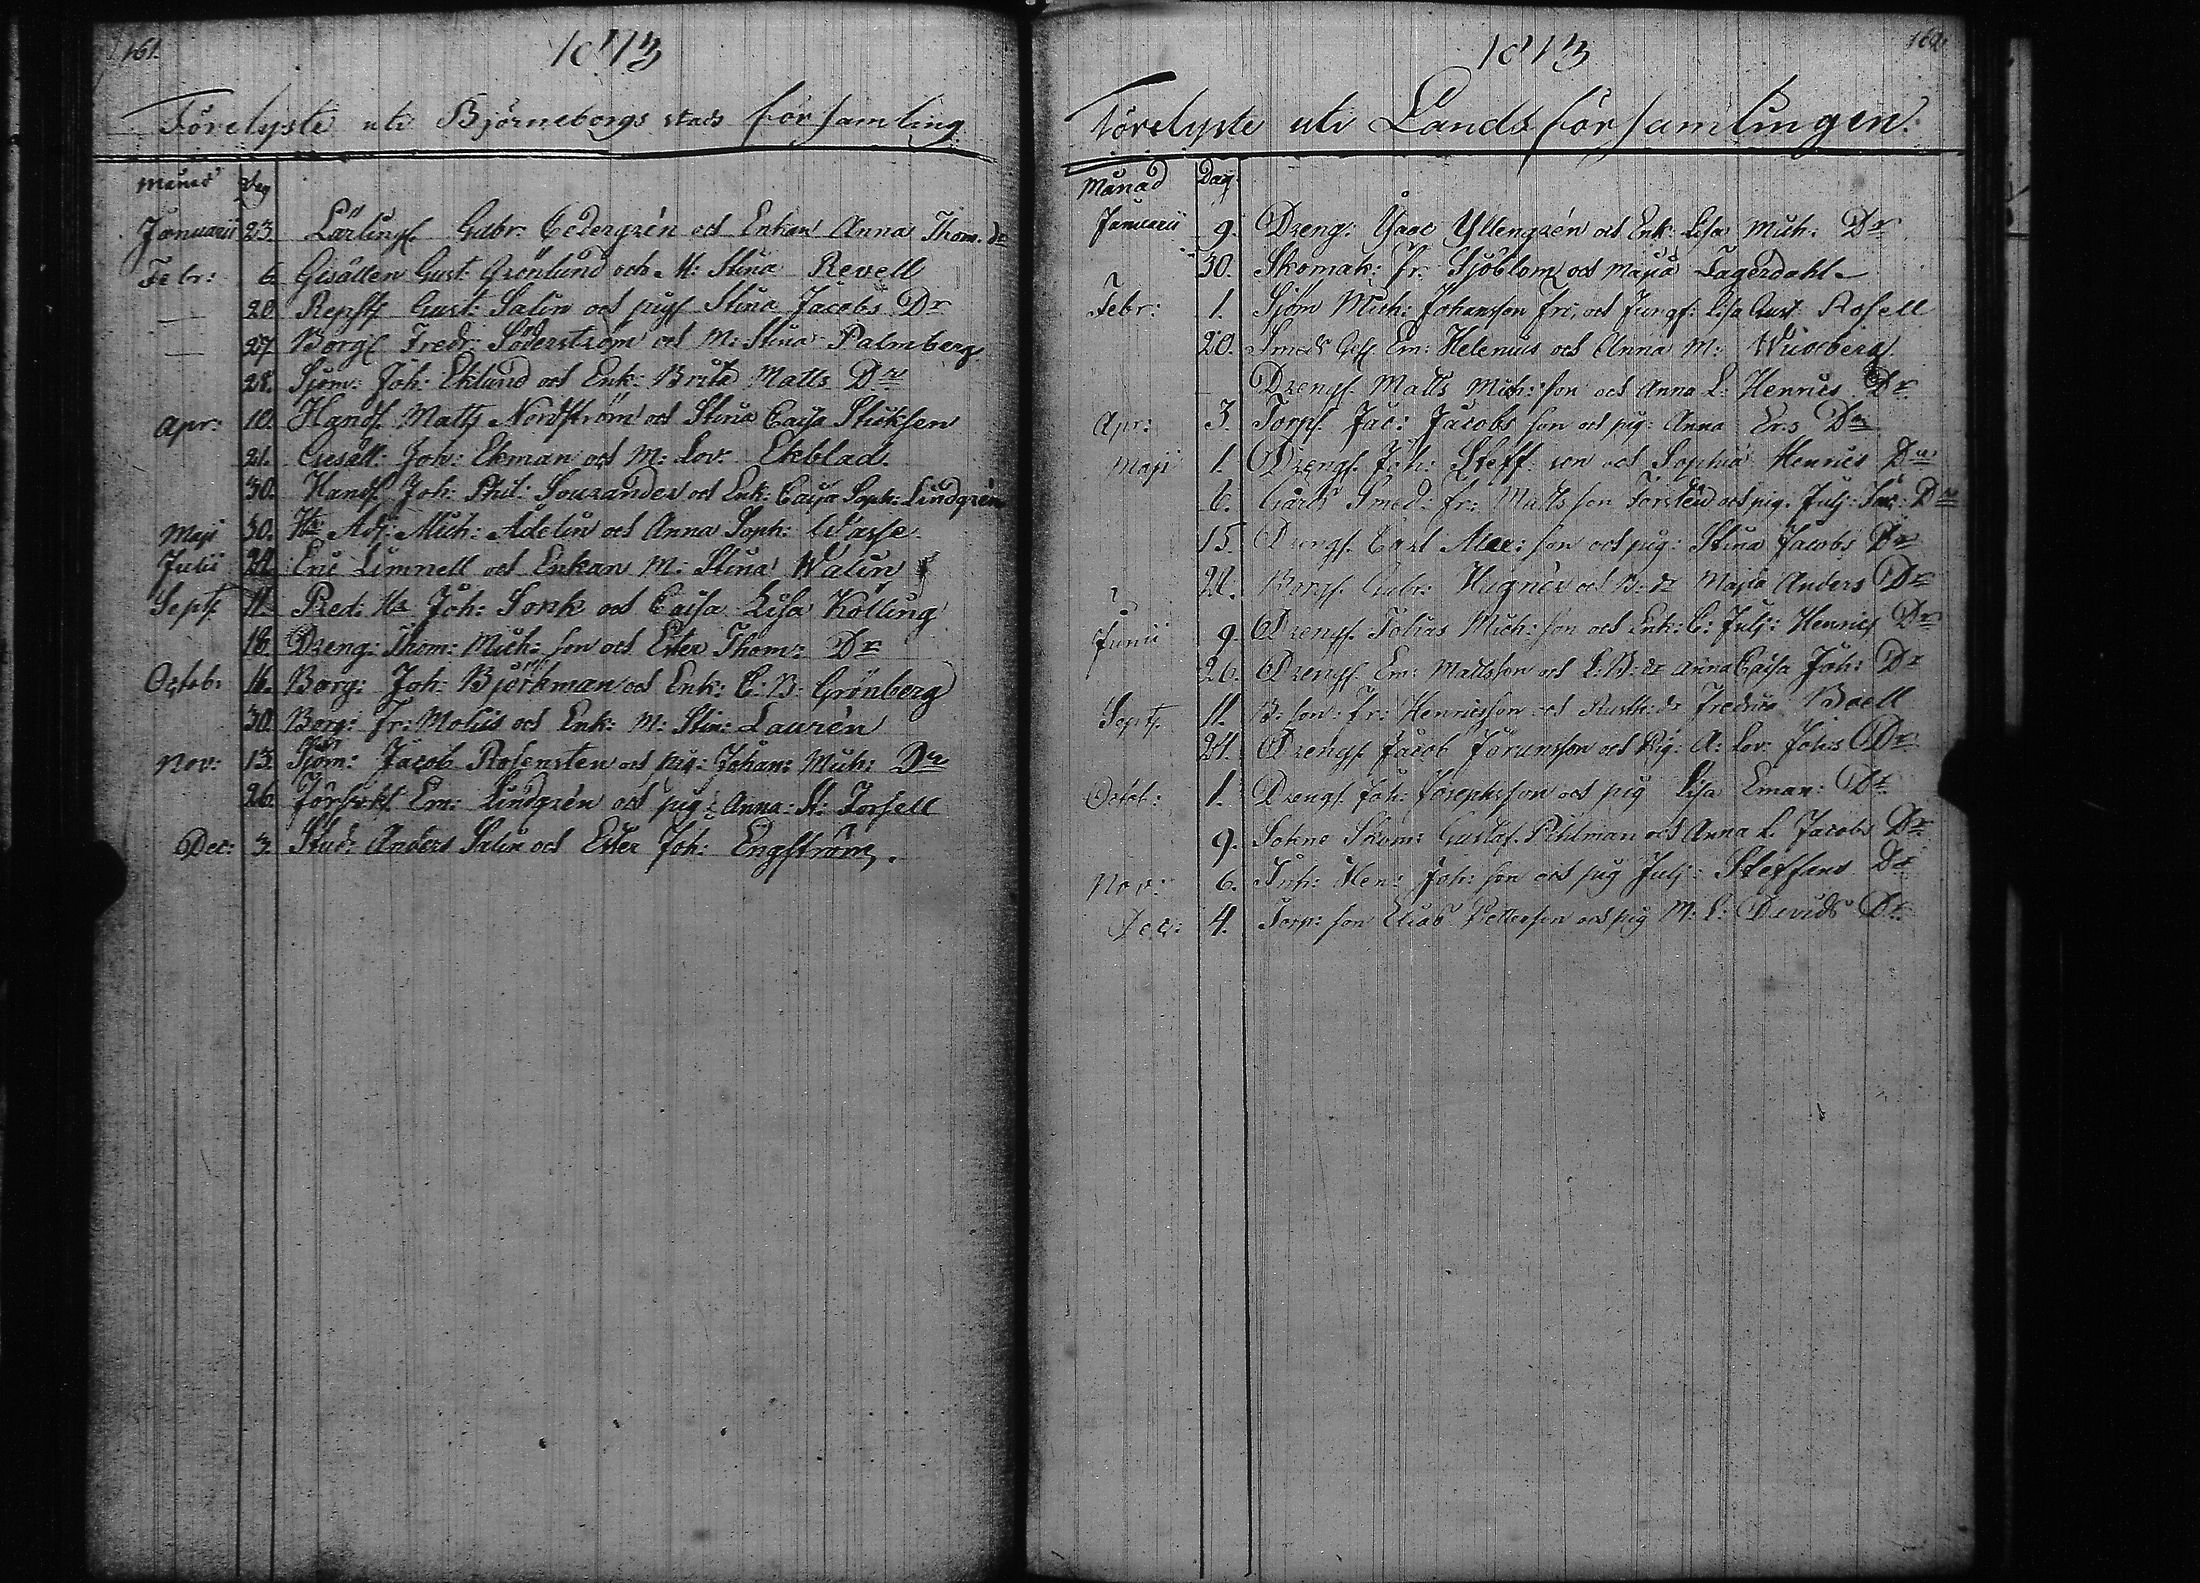 161.
1813
Förelyste uti Björneborgs stads församling
Månad Dag
Januarii 23. Lärlingn. Gabr. Cedergrén och Enkan Anna Thom. Dr
Febr: 6. Gesällen Gust. Grönlund och M: Stina Revell
20. Gust: Salin och pig. Stina Jacobs Dr
27 Borg. Fredr. Söderström och M: Stina Palmberg
28. Sjöm: Joh: Eklund och Enk: Brita Matts Dr
Apr: 10. Handl. Matts Nordström och Stina Caisa Stichsen
21. Gesäll. Joh: Ekman och M: Lov: Ekblad.
30. Handl. Joh: Phil: Sourander och Enk: Caisa Soph: Lindgrén
Maji 30. Hr Adj: Mich: Adelin och Anna Soph: Wasse
Julii Eric Limnell och Enkan M: Stina Walin
Sept. 11. Pred: Hr Joh: Sonk och Caisa Lisa Kölling
18. Dreng: Thom: Mich: son och Ester Thom: Dr
Octob: 16. Borg: Joh: Björkman och Enk: C: B: Grönberg
30. Borg: Fr: Molin och Enk: M: Stin: Laurén
Nov: 13. Sjöm: Jacob Rosensten och pig: Johan: Mich: Dr
26. Em: Lindgrén och pig: Anna: H: Torsell
Dec: 3. Stud: Anders Salin och Ester Joh: Engström.
162.
1813
Förelyste uti Landsförsamlingen.
Månad Dag.
Januarii 9. Dreng: Isaac Yllengrén och Enk: Lisa Mich: Dr
30. Skomak: Fr: Sjöblom och Maja Lagerdahl
Febr: 1. Sjöm Mich: Johansson fri, och Jungf: Lisa Gust: Rosell
20. Smeds Gess. Em: Helenius och Anna M: Widberg.
Drengs. Matts Mich: son och Anna L: Henrics Dr
Apr: 3. Torps. Jac: Jacobs son och pig: Anna Ers Dr
Maji 1. Drengs. Joh: Steff: son och Sophia Henrics Dr
6. Gårds Smed: Fr: Matts son Forstén och pig: Julj: Jac: Dr
15. Drengs. Carl Alex: son och pig: Stina Jacobs Dr
22. Borgs. Gabr: Hugnér och B: dr Maja Anders Dr
Junii 9. Drengs. Tobias Mich: son och Enk: C: Julj: Henrics Dr
20. Drengs. Em: Mattsson och L: B: dr Anna Caisa Joh: Dr
Sept. 11. B: son: Fr: Henricsson och Rusth: dr Fredrica Boell
24. Drengs. Jacob Göransson och Pig: A: Lov: Joh:s Dr
Octob: 1. Drengs. Joh: Josephsson och pig Lisa Eman: Dr
9. Sokne Skom: Gustaf Pihlman och Anna L. Jacobs Dr
Nov: 6. Inh: Hen: Joh: son och pig Julj: Steffans Dr
Dec: 4. Torp: son Elias Pettersson och pig M: L: Davids Dr